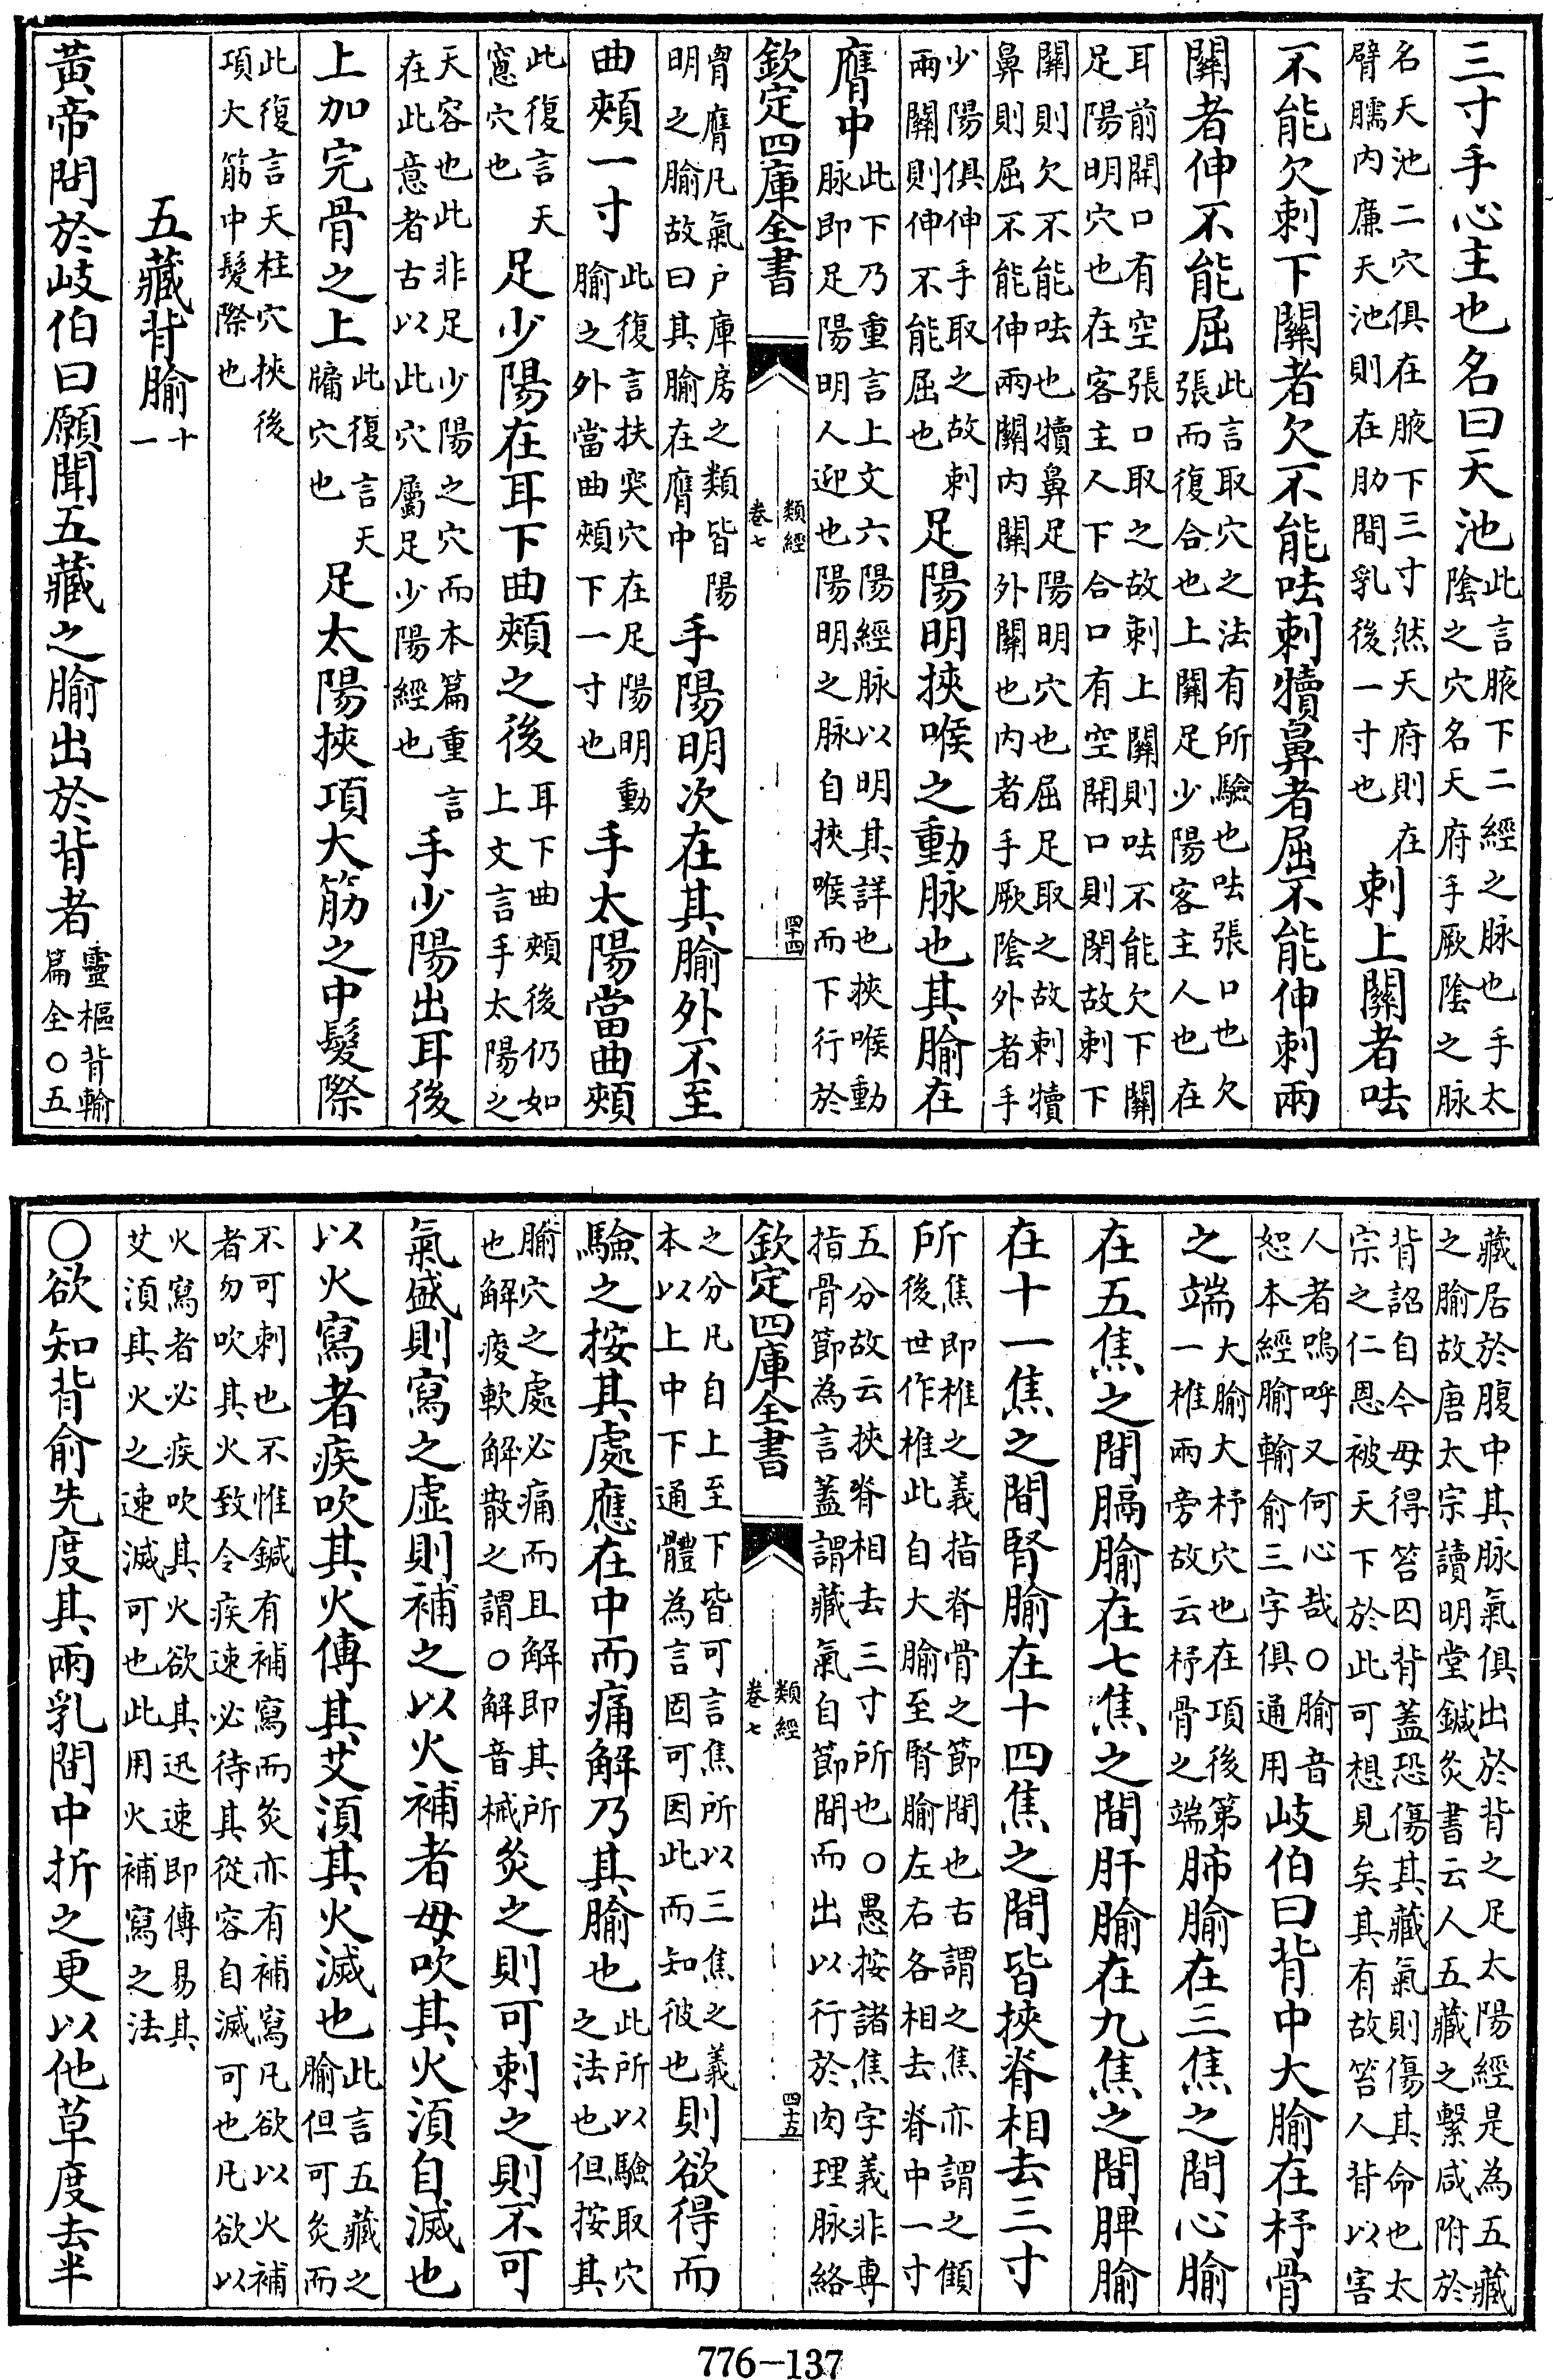 三寸手心主也名曰天池此言腋下二經之脉也手太
陰之穴名天府手厥陰之脉
名天池二穴俱在腋下三寸然天府則在
臂臑内廉天池則在肋間乳後一寸也刺上關者呿
不能欠刺下關者欠不能呿刺犢鼻者屈不能伸刺兩
關者伸不能屈此言取穴之法有所驗也呿張口也欠
張而復合也上關足少陽客主人也在
耳前開口有空張口取之故刺上關則呿不能欠下關
足陽明穴也在客主人下合口有空開口則閉故刺下
關則欠不能呿也犢鼻足陽明穴也屈足取之故刺犢
鼻則屈不能伸兩關内關外關也内者手厥陰外者手
少陽俱伸手取之故刺
兩關則伸不能屈也足陽明挾喉之動脉也其腧在
膺中此下乃重言上文六陽經脉以明其詳也挾喉動
脉即足陽明人迎也陽明之脉自挾喉而下行於
欽定四庫全書
類經
卷七
四十四
胷膺凡氣户庫房之類皆陽
明之腧故曰其腧在膺中手陽明次在其腧外不至
曲頰一寸此復言扶突穴在足陽明動
腧之外當曲頰下一寸也手太陽當曲頰
此復言天
窻穴也足少陽在耳下曲頰之後耳下曲頰後仍如
上文言手太陽之
天容也此非足少陽之穴而本篇重言
在此意者古以此穴屬足少陽經也手少陽出耳後
上加完骨之上此復言天
牖穴也足太陽挾項大筋之中髮際
此復言天柱穴挾後
項大筋中髮際也
五藏背腧十
一
黃帝問於岐伯曰願聞五藏之腧出於背者靈樞背輸
篇全○五
藏居於腹中其脉氣俱出於背之足太陽經是為五藏
之腧故唐太宗讀明堂鍼灸書云人五藏之繫咸附於
背詔自今毋得笞囚背蓋恐傷其藏氣則傷其命也太
宗之仁恩被天下於此可想見矣其有故笞人背以害
人者嗚呼又何心哉○腧音
恕本經腧輸俞三字俱通用岐伯曰背中大腧在杼骨
之端大腧大杼穴也在項後第
一椎兩旁故云杼骨之端肺腧在三焦之間心腧
在五焦之間膈腧在七焦之間肝腧在九焦之間脾腧
在十一焦之間腎腧在十四焦之間皆挾脊相去三寸
所焦即椎之義指脊骨之節間也古謂之焦亦謂之顀
後世作椎此自大腧至腎腧左右各相去脊中一寸
五分故云挾脊相去三寸所也○愚按諸焦字義非專
指骨節為言蓋謂藏氣自節間而出以行於肉理脉絡
欽定四庫全書
類經
卷七
四十五
之分凡自上至下皆可言焦所以三焦之義
本以上中下通體為言固可因此而知彼也則欲得而
驗之按其處應在中而痛解乃其腧也此所以驗取穴
之法也但按其
腧穴之處必痛而且解即其所
也解痠軟解散之謂○解音械灸之則可刺之則不可
氣盛則寫之虛則補之以火補者毋吹其火湏自滅也
以火寫者疾吹其火傅其艾湏其火滅也此言五藏之
腧但可灸而
不可刺也不惟鍼有補寫而灸亦有補寫凡欲以火補
者勿吹其火致令疾速必待其從容自滅可也凡欲以
火寫者必疾吹其火欲其迅速即傅易其
艾湏其火之速滅可也此用火補寫之法
○欲知背俞先度其兩乳間中折之更以他草度去半
776-137